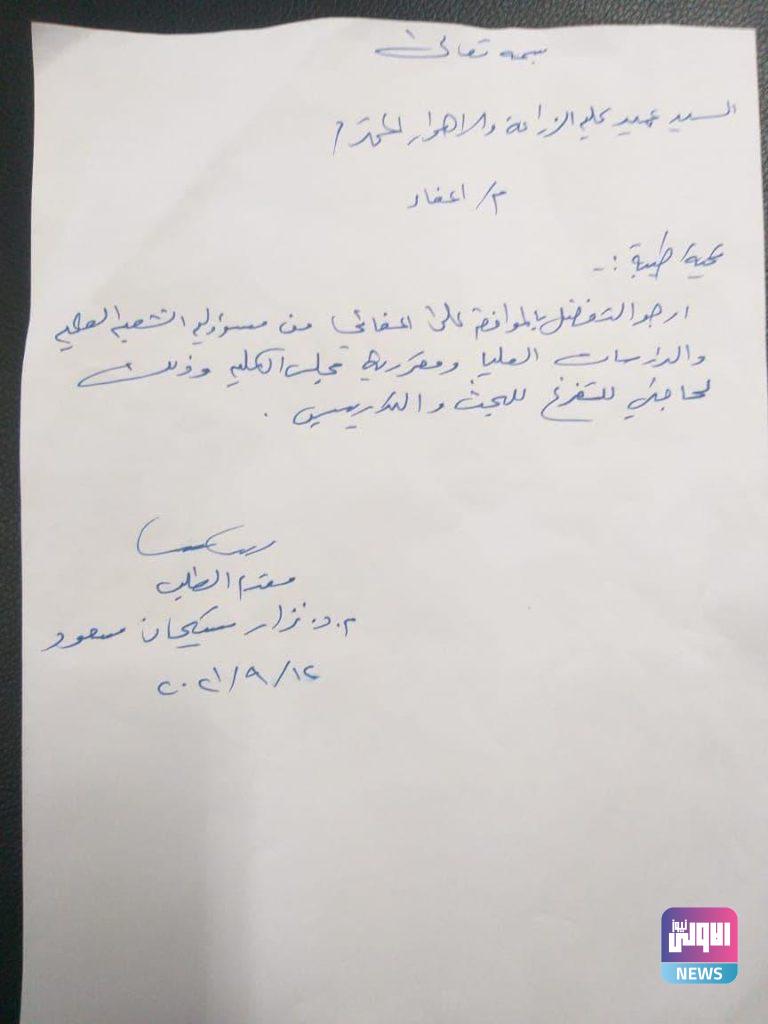 بسمه تعالى
السيد عميد كلية الزراعة والاهوار المحترم
م/ اعفاء
تحية طيبة :-
ارجو التفضل بالموافقة على اعفائي من مسؤولية الشعبة العلمية
والدراسات العليا ومقررية مجلس الكلية وذلك
لحاجتي للتفرغ للبحث والتدريس .
مقدم الطلب
م.د. نزار سيحان مسعود
٢٠٢١/٩/١٢
الاولى نيوز
NEWS